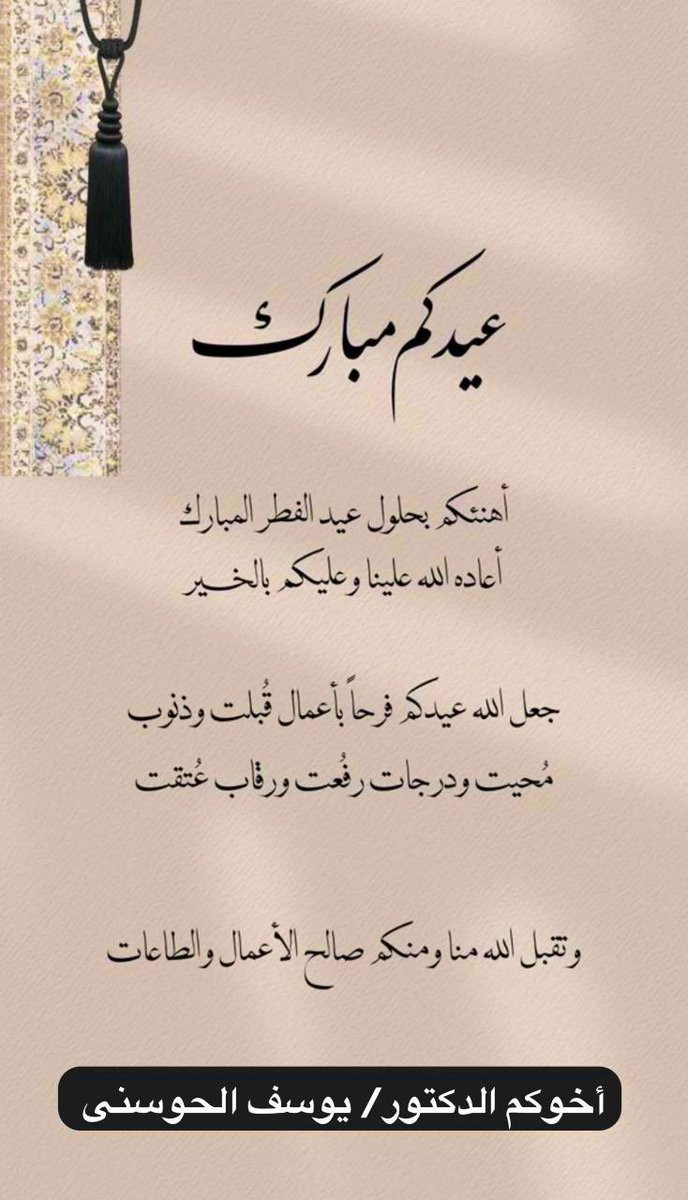 عيدكم مبارك
أهنئكم بحلول عيد الفطر المبارك
أعاده الله علينا وعليكم بالخير
جعل الله عيدكم فرحاً بأعمال قُبلت وذنوب
مُحيت ودرجات رفُعت ورقاب عُتقت
وتقبل الله منا ومنكم صالح الأعمال والطاعات
أخوكم الدكتور/ يوسف الحوسنى